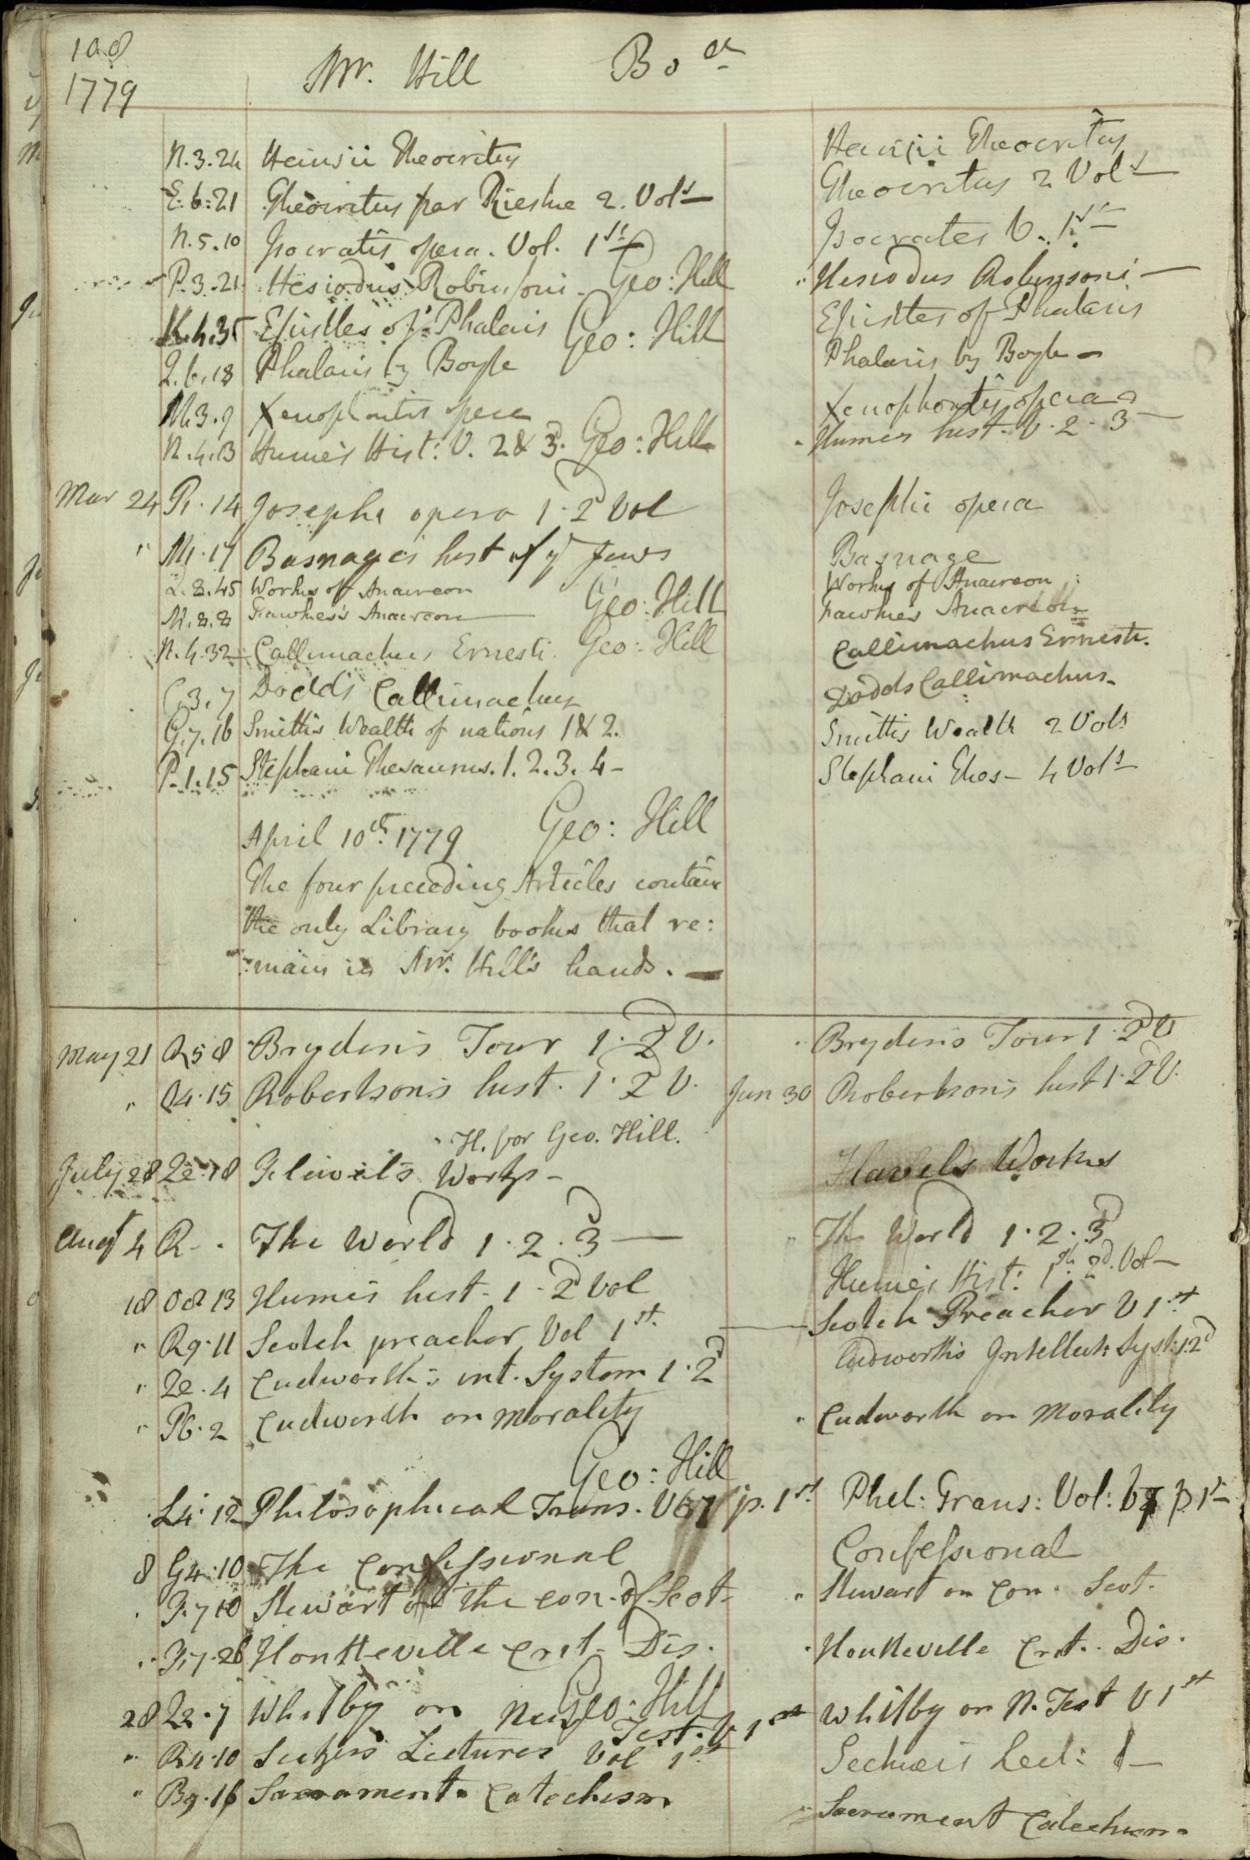 108
1779 Mr. Hill Bo or
N.3.24 Heinsii Theocritus Heinsii Theocritus
E.6.21 Theocritus par Rieske 2. Vols Theocritus 2 Vols
N.5.10 Isocratis opera. Vol. 1st Isocrates V. 1st
P.3.21 Hesiodus Robinsoni. Geo: Hill Hesiodus Robinsoni
K.4.35 Epistles of Phalaris Geo: Hill Epistles of Phalaris
Q.6.18 Phalaris by Boyle Phalaris by Boyle
M.3.9 Xenophontis opera Xenophontis opera
N.4.13 Hume's Hist: V. 2 & 3d. Geo: Hill Humes hist. V. 2. 3
Mar 24 R. 14 Josephi opera 1. 2d Vol Josephi opera
" M. 17 Basnages hist of ye Jews Basnage
L.8.45 Works of Anacreon Works of Anacreon
M.8.8 Fawkes's Anacreon Geo: Hill Fawkes Anacreon
N.4.32 Callimachus Ernesti Geo: Hill Callimachus Ernesti.
C.3.7 Dodd's Callimachus Dodds Callimachus
G.7.16 Smith's Wealth of nations 1 & 2. Smith's Wealth 2 Vols
P.1.15 Stephani Thesaurus. 1. 2. 3. 4 Stephani Thes 4 Vols
April 10th 1779 Geo: Hill
The four preceding Articles contain
the only Library books that re:
:main in Mr. Hill's hands.
May 21 R5 8 Brydon's Tour 1. 2d V. Brydon's Tour 1. 2d V
" Q4.15 Robertson's hist. 1. 2d V. Jun 30 Robertson's hist 1. 2d V.
H. for Geo. Hill.
July 28 Ze.18 Flavel's Works Flavel's Works
Augt 4 R The World 1. 2. 3d The World 1. 2. 3d
18 O8 13 Humes hist. 1. 2d Vol Hume's Hist: 1st 2d. Vol
" R9.11 Scotch preacher Vol 1st. Scotch Preacher V 1st
" Ze.4 Cudworth's int. System 1. 2d Cudworth's Intellect: Syst: 1. 2d
" P6.2 Cudworth on Morality " Cudworth on Morality
Geo: Hill
L4.12 Philosophical Trans. V 67 p. 1st Phil: Trans: Vol: 67 p 1st
8 G4.10 The Confessional Confessional
" F.7 10 Stewart on the con. of Scot " Stewart on Con. Scot.
" F.7.26 Houtteville Crit. Dis. Houtteville Crit. Dis.
28 Ze.7 Whitby on New Geo: Hill Whitby on N. Test V 1st
Test. V 1st
" R4.10 Secker's Lectures Vol 1st Secker's Lect: 1
" B9.16 Sacrament. Catechism " Sacrament Catechism